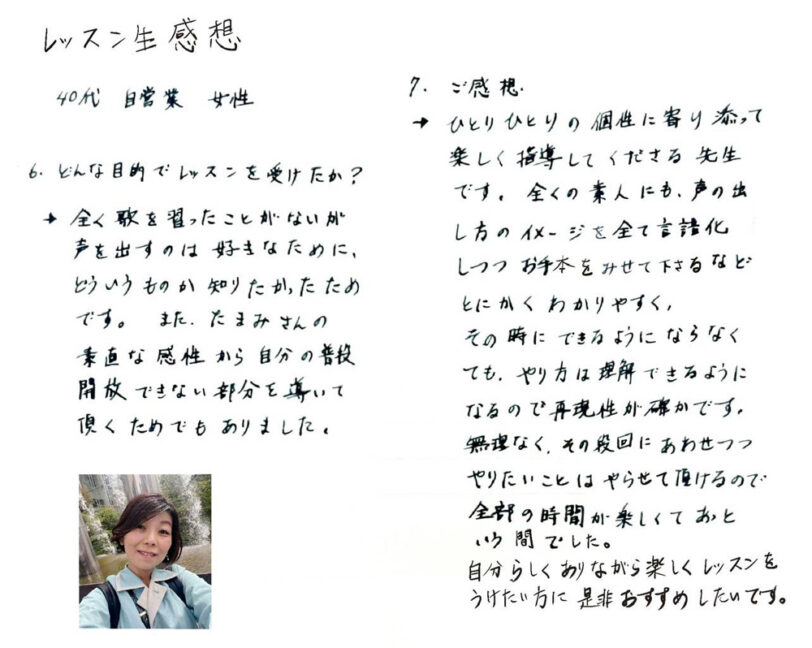 レッスン生感想
40代 自営業 女性
6. どんな目的でレッスンを受けたか?
→ 全く歌を習ったことがないが
声を出すのは好きなために、
どういうものか知りたかったため
です。 また、たまみさんの
素直な感性から自分の普段
開放できない部分を導いて
頂くためでもありました。
7. ご感想.
→ ひとりひとりの個性に寄り添って
楽しく指導してくださる先生
です。全くの素人にも、声の出
し方のイメージを全て言語化
しつつお手本をみせて下さるなど
とにかくわかりやすく、
その時にできるようにならなく
ても、やり方は理解できるように
なるので再現性が確かです。
無理なく、その段回にあわせつつ
やりたいことはやらせて頂けるので
全部の時間が楽しくてあっと
いう間でした。
自分らしくありながら楽しくレッスンを
うけたい方に是非おすすめしたいです。